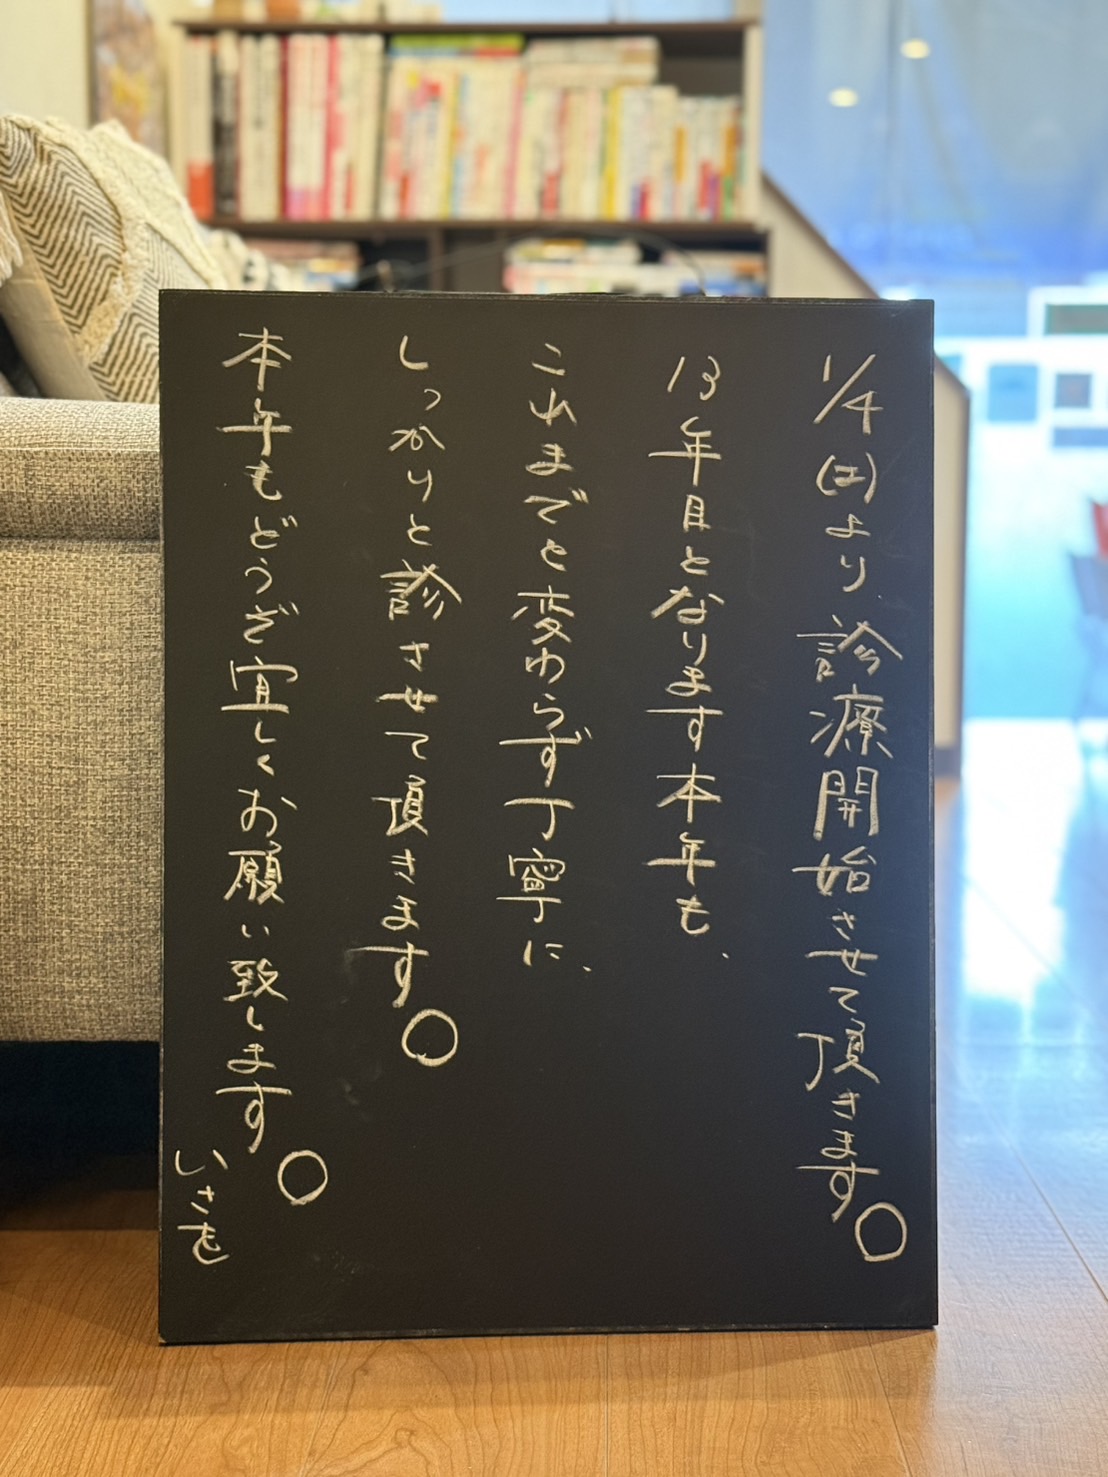 1/4(土)より診療開始させて頂きます。
13年目となります本年も、
これまでと変わらず丁寧に、
しっかりと診させて頂きます。
本年もどうぞ宜しくお願い致します。
いさを